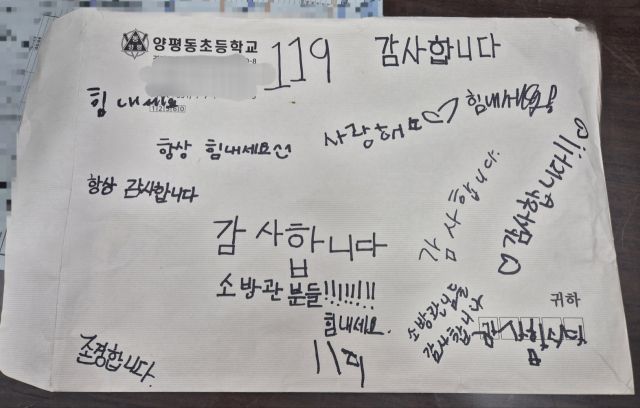 양평동초등학교
119
감사합니다
힘내세요
힘내세요
사랑해요♡
항상 힘내세요
항상 감사합니다
감사합니다.
감사합니다!!♡
감사합니다
소방관 분들!!!!!!!!
힘내세요.
119
소방관님들
감사합니다
귀하
감사합니다
존경합니다.